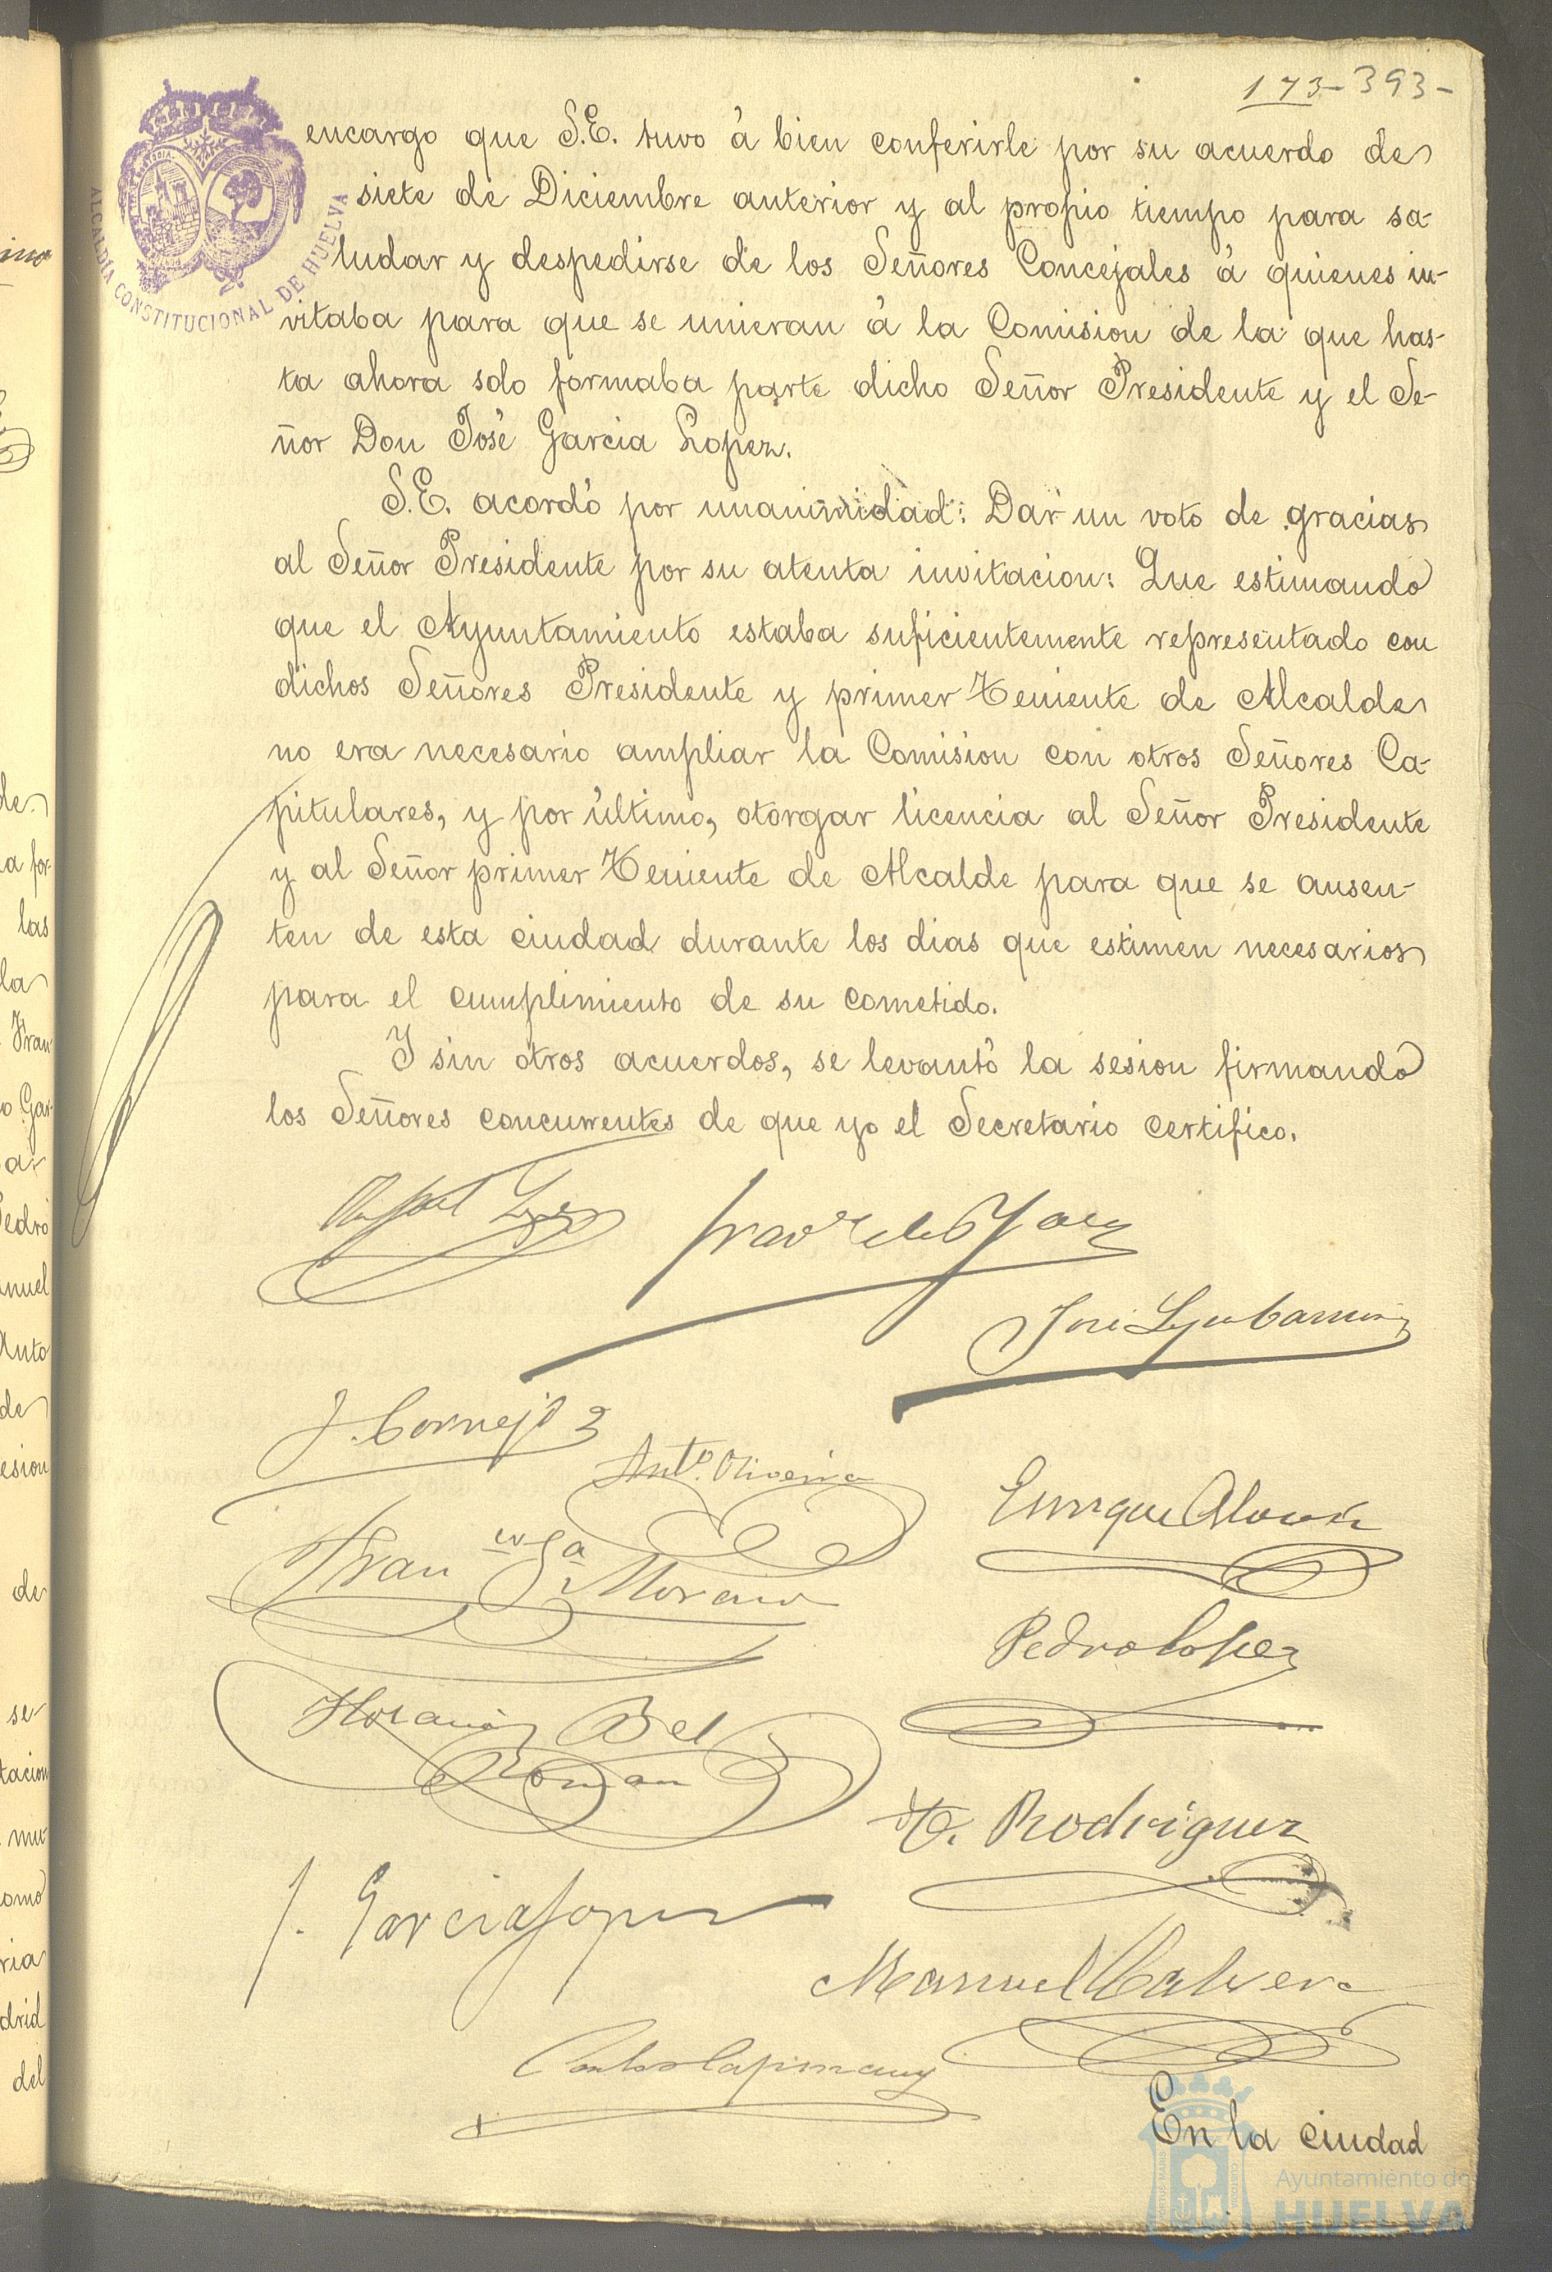 173-393-
ALCALDÍA CONSTITUCIONAL DE HUELVA
encargo que S.E. tuvo á bien conferirle por su acuerdo de
siete de Diciembre anterior y al propio tiempo para sa-
ludar y despedirse de los Señores Concejales á quienes in-
vitaba para que se unieran á la Comision de la que has-
ta ahora solo formaba parte dicho Señor Presidente y el Se-
ñor Don José Garcia Lopez.
S.E. acordó por unanimidad: Dar un voto de gracias
al Señor Presidente por su atenta invitacion: Que estimando
que el Ayuntamiento estaba suficientemente representado con
dichos Señores Presidente y primer Teniente de Alcalde
no era necesario ampliar la Comision con otros Señores Ca-
pitulares, y por último, otorgar licencia al Señor Presidente
y al Señor primer Teniente de Alcalde para que se ausen-
ten de esta ciudad durante los dias que estimen necesarios
para el cumplimiento de su cometido.
Y sin otros acuerdos, se levantó la sesion firmando
los Señores concurrentes de que yo el Secretario certifico.
José
J. Cornejo
Antº. Oliveira
Enrique
Fran co Ga Moreno
Pedro Lopez
Bel
Roman
T. Rodriguez
J. Garcia Lopez
Manuel Calvero
En la ciudad
Ayuntamiento de
HUELVA